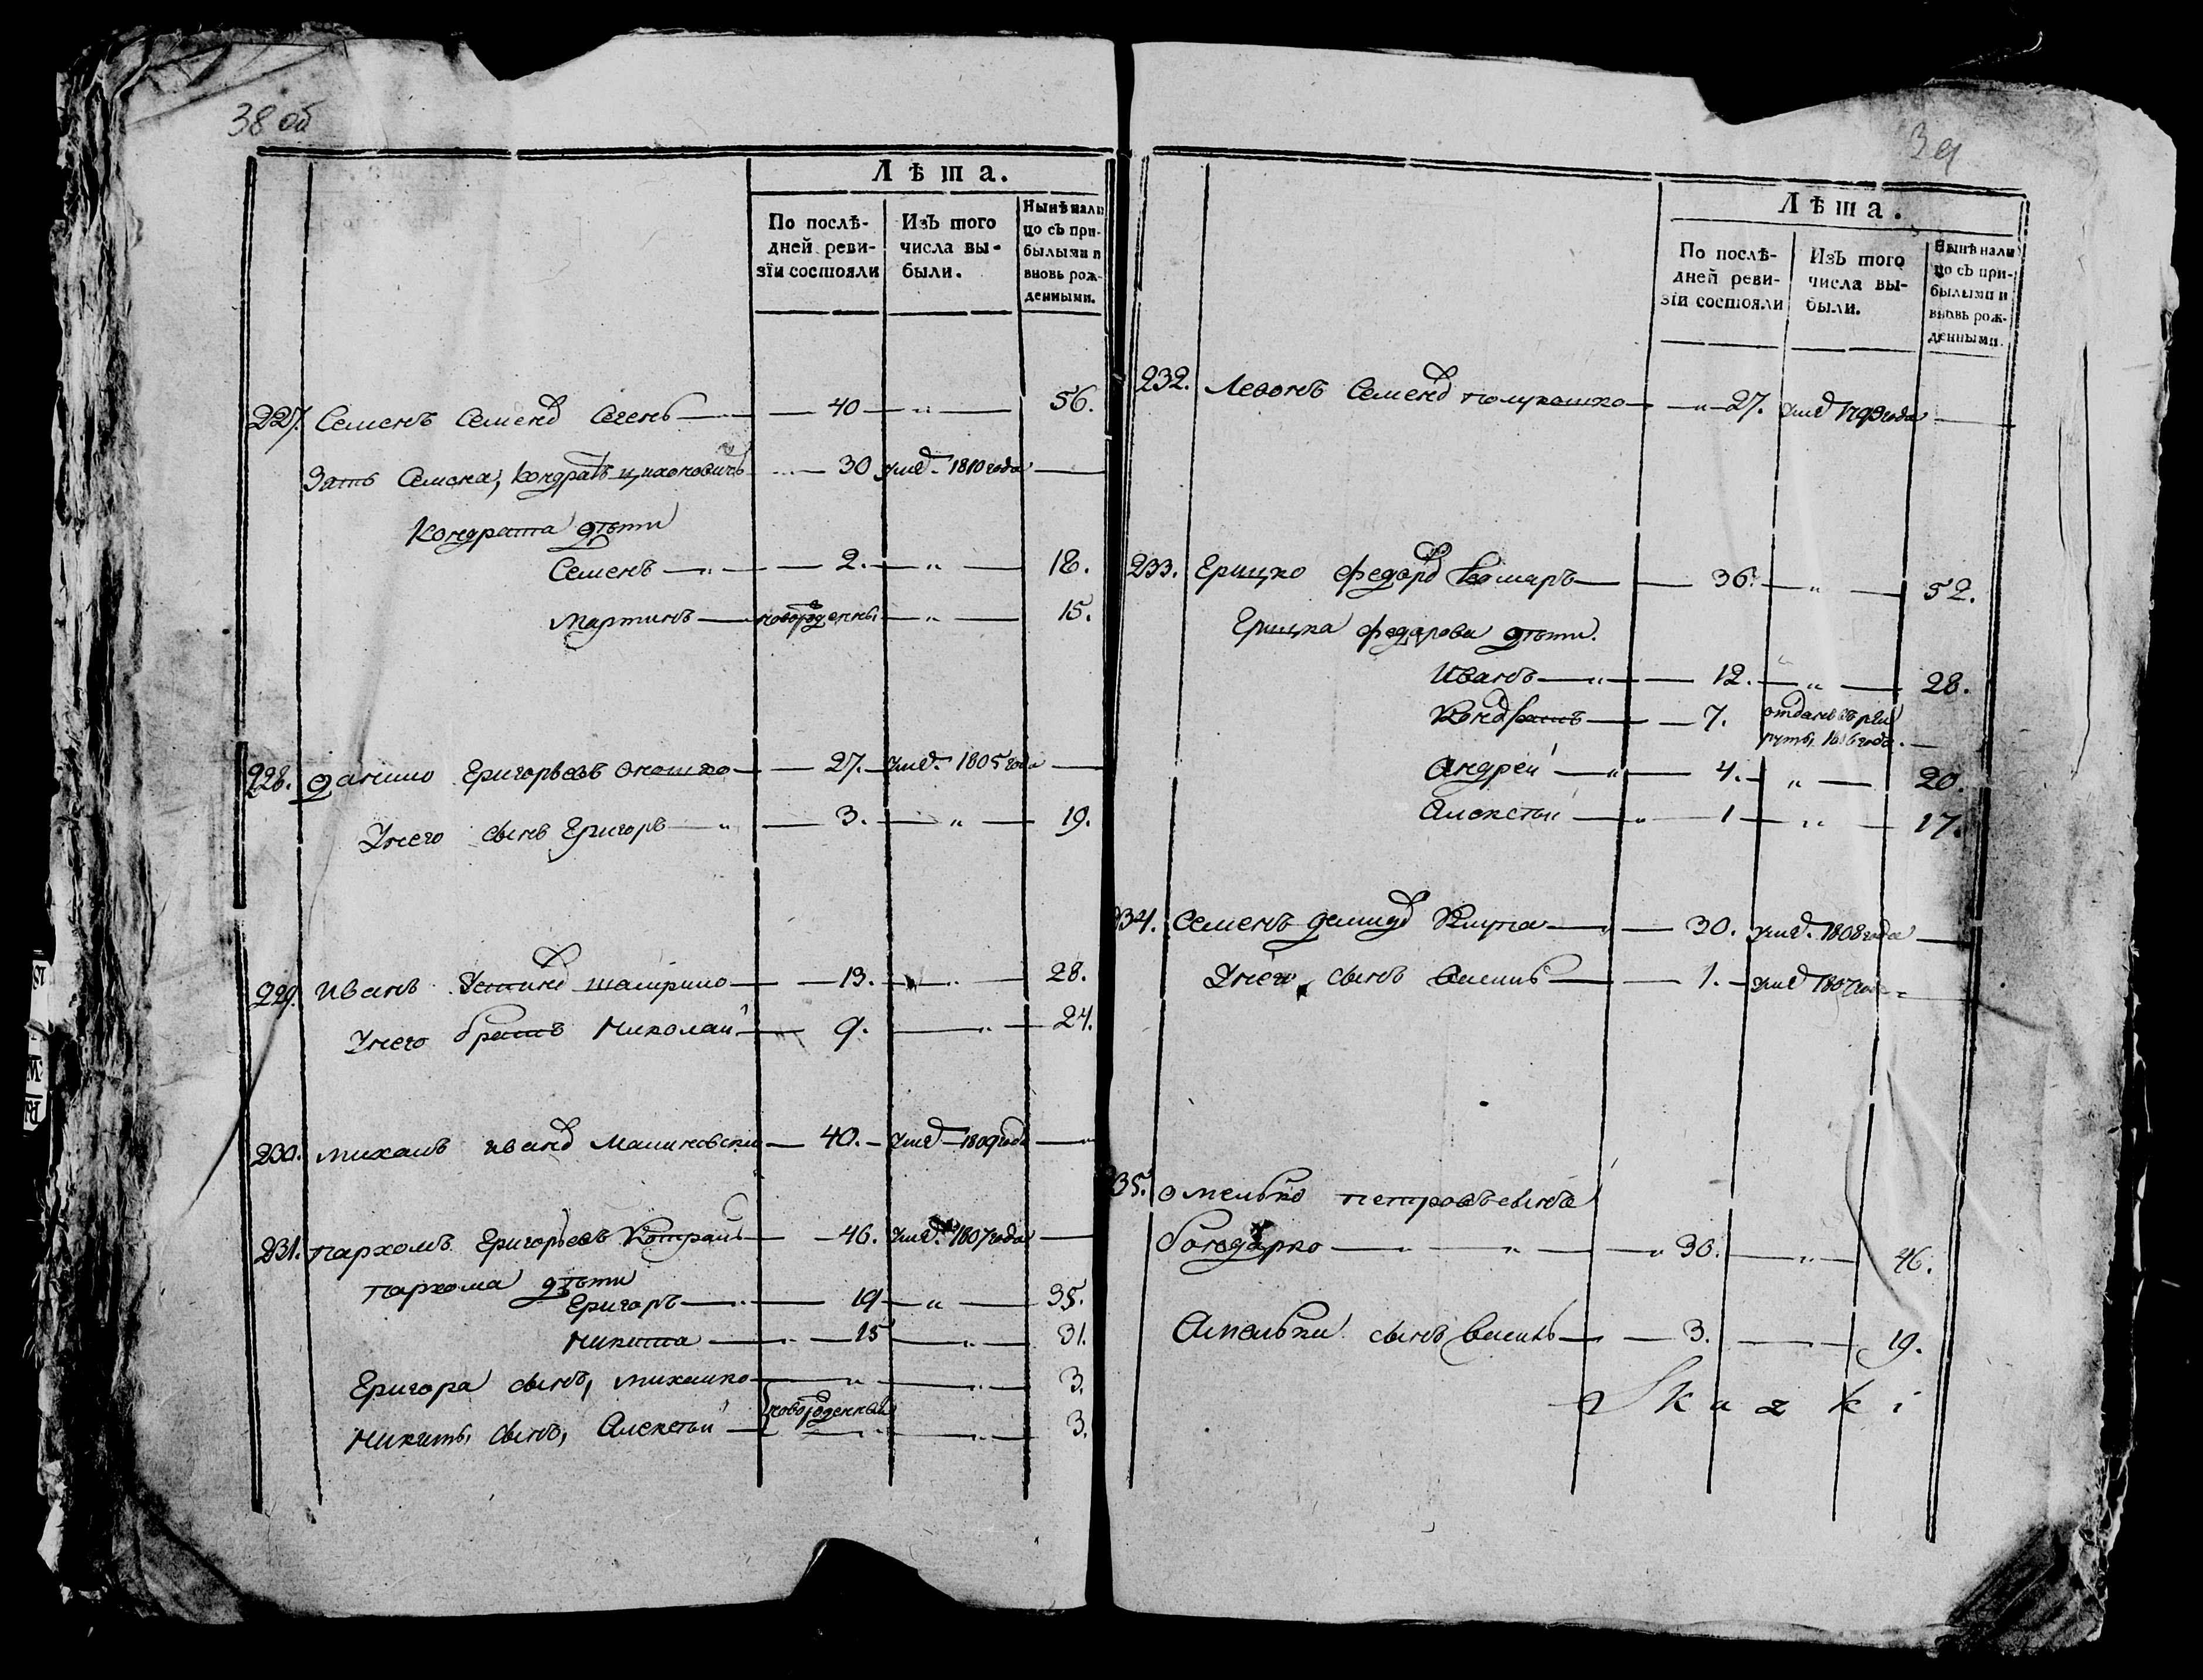 38 об
Лѣта.
По послѣ-
дней реви-
зїи состояли
Изъ того
числа вы-
были.
Нынѣ нали
цо съ при-
былыми и
вновь рож-
денными.
227. Семенъ Семенд Сегень — 40 — " — 56.
Зять Семена, Кондратъ Цихоновичъ — 30 умеِ. 1810 года —
Кондрата дѣти
Семенъ — " — 2. — " — 18.
Мартинъ — новорожденны — " — 15.
228. Данило Григорьевъ Окошко — 27. — умер. 1805 года —
У него сынъ Григоръ — " — 3. — " — 19.
229. Иванъ Устинов — 13. — " — 28.
У него братъ Николай — " 9. — " — 24.
230. Михаилъ Иванов Малиновски — 40. — умер — 1809 года —
231. Пархомъ Григорьевъ — 46. умер. 1807 года —
Пархома дѣти
Григоръ — " — 19 — " — 35.
Никита — " — 15 — " — 31.
Григора сынъ, Михайко — " — " — 3.
новорожденный
Никиты сынъ, Алексѣй — " — 3.
39
Лѣта.
По послѣ-
дней реви-
зїи состояли
Изъ того
числа вы-
были.
Нынѣ нали
цо съ при-
былыми и
вновь рож-
денными.
232. Левонъ Семенов Полукошко — " — 27. умер 1799 года —
233. Грицко Федоров — 36. — " — 52.
Грицка Федорова дѣти.
Иванъ — " — 12. — " — 28.
Кондратъ — 7. отданъ въ рек
руты 1806 года. —
Андрей — " — 4. — " — 20.
Алексѣй — " — 1 — " — 17.
234. Семенъ Демидов — " — 30. умер. 1808 года —
У него сынъ — 1. — умер 1807 года —
235. Омелько Петровъ сынъ
Бондарко — " — " — " 30. — " — 46.
Амельки сынъ — 3. — " — 19.
Skazki